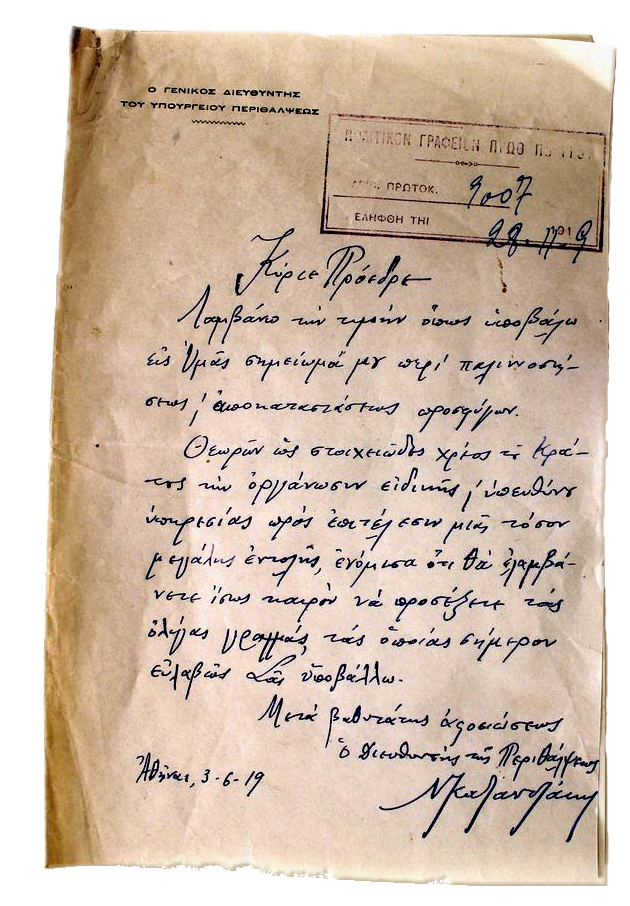 Ο ΓΕΝΙΚΟΣ ΔΙΕΥΘΥΝΤΗΣ
ΤΟΥ ΥΠΟΥΡΓΕΙΟΥ ΠΕΡΙΘΑΛΨΕΩΣ
ΠΟΛΙΤΙΚΟΝ ΓΡΑΦΕΙΟΝ
ΠΡΩΤΟΚ. 9007
ΕΛΗΦΘΗ ΤΗΙ 191
Κύριε Πρόεδρε
Λαμβάνω τὴν τιμὴν ὅπως ὑποβάλω
εἰς Ὑμᾶς σημείωμά μου περὶ παλιννοστή-
σεως / ἀποκαταστάσεως προσφύγων.
Θεωρῶν ὡς στοιχειῶδες χρέος τοῦ Κρά-
τους τὴν ὀργάνωσιν εἰδικῆς / ὑπευθύνου
ὑπηρεσίας πρὸς ἐπιτέλεσιν μιᾶς τόσον
μεγάλης ἐντολῆς, ἐνόμισα ὅτι θὰ ἐλαμβά-
νετε ἴσως καιρὸν νὰ προσέξετε τὰς
ὀλίγας γραμμάς, τὰς ὁποίας σήμερον
εὐλαβῶς Σᾶς ὑποβάλλω.
Μετὰ βαθυτάτης ἀφοσιώσεως
ὁ Διευθυντὴς τῆς Περιθάλψεως
Ἀθῆναι, 3-6-19
ΝΚαζαντζάκης